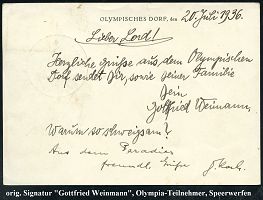 OLYMPISCHES DORF, den 20. Juli 1936.
Lieber Lord!
Herzliche Grüsse aus dem Olympischen
Dorf sendet Dir, sowie Deiner Familie
Dein
Gottfried Weimann,
Warum so schweigsam?
Aus dem Paradies
freundl. Grüße J. Koch.
orig. Signatur "Gottfried Weinmann", Olympia-Teilnehmer, Speerwerfen